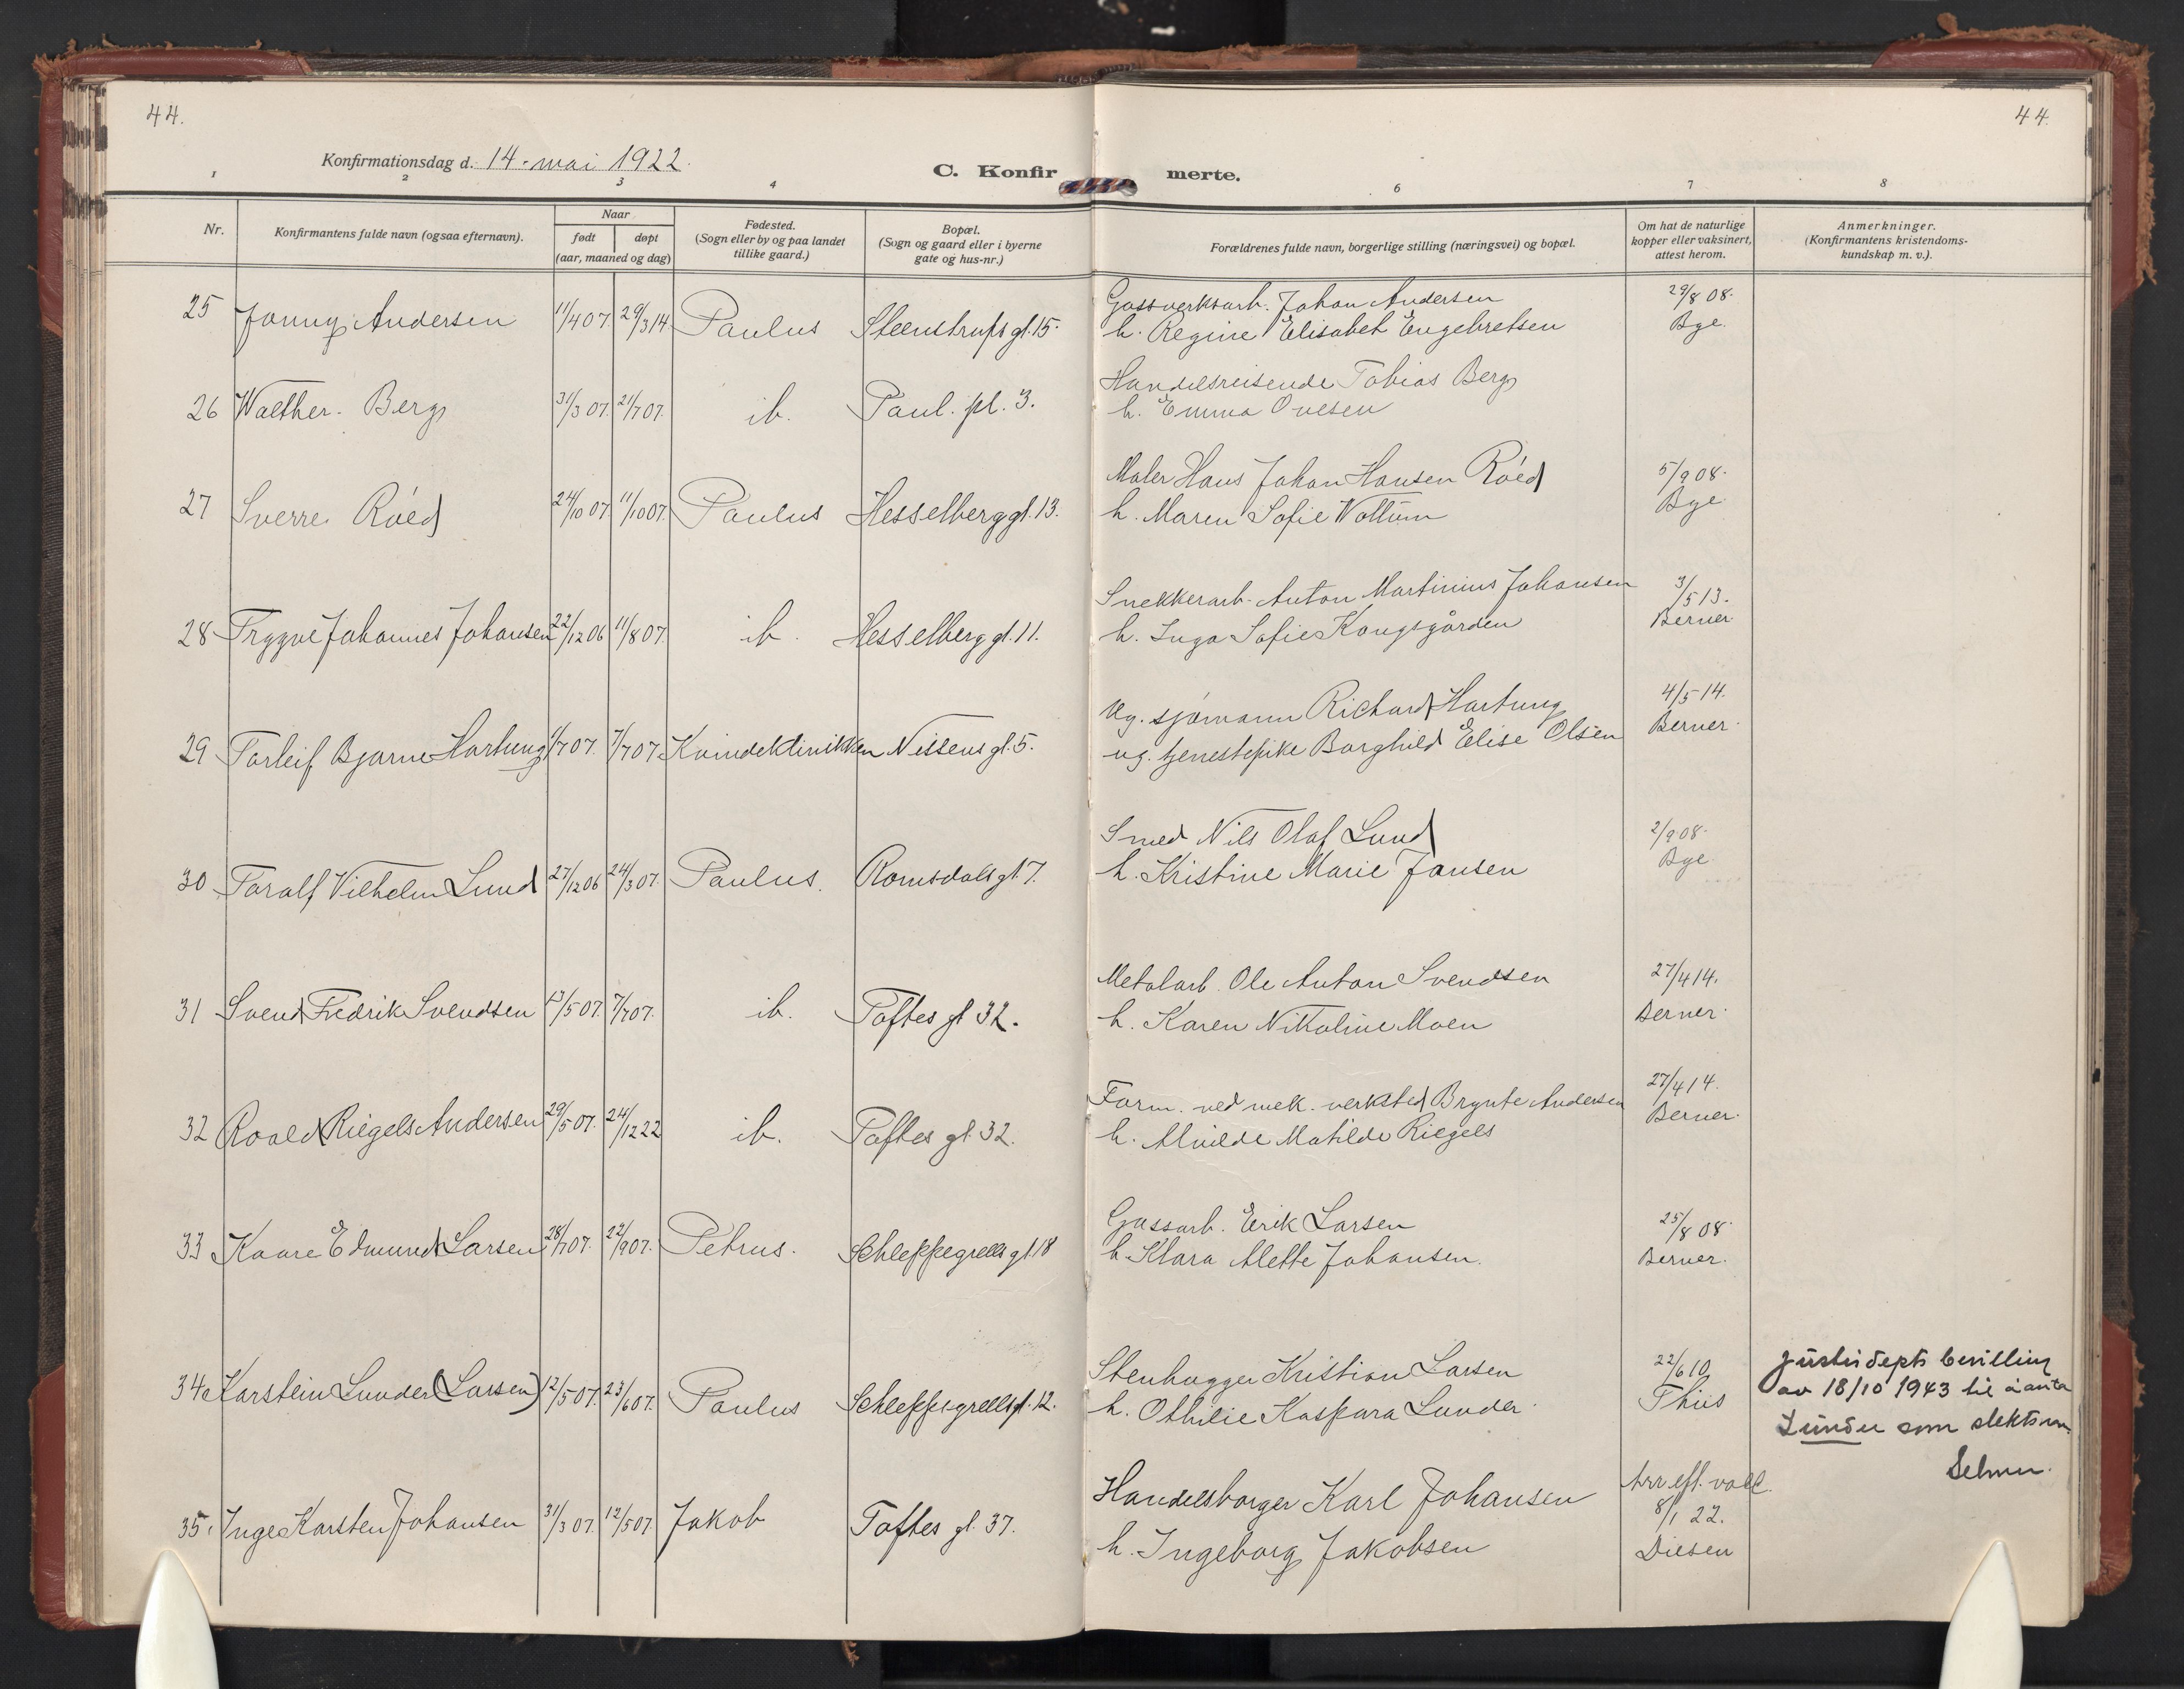 44.
44.
Konfirmationsdag d. 14. mai 1922.
C. Konfirmerte.
1 2 3 4 6 7 8
Nr.
Konfirmantens fulde navn (ogsaa efternavn).
Naar
født døpt
(aar, maaned og dag)
Fødested.
(Sogn eller by og paa landet
tillike gaard.)
Bopæl.
(Sogn og gaard eller i byerne
gate og hus-nr.)
Forældrenes fulde navn, borgerlige stilling (næringsvei) og bopæl.
Om hat de naturlige
kopper eller vaksinert,
attest herom.
Anmerkninger.
(Konfirmantens kristendoms-
kundskap m. v.).
25 Jonny Andersen 11/4 07. 29/3 14. Paulus Steenstrups gt. 15.
Gassverksarb. Johan Andersen
h. Regine Elisabet Engebretsen
29/8 08.
Bye.
26 Walther Berg 31/3 07. 21/7 07. ib. Paul. pl. 3.
Handelsreisende Tobias Berg
h. Emma Ovesen
27 Sverre Róed 24/10 07. 11/10 07. Paulus Hesselberg gt. 13.
Maler Hans Johan Hansen Róed
h. Maren Sofie Wottum
5/9 08.
Bye.
28 Trygve Johannes Johansen 22/12 06 11/8 07. ib. Hesselberg gt. 11.
Snekkerarb. Anton Martinius Johansen
h. Inga Sofie Kongsgården
3/5 13.
Berner
29 Torleif Bjarne Hartung 1/7 07. 7/7 07 Kvindeklinikken Nissens gt. 5.
Ug. sjømann Richard Hartung
ug. tjenestepike Borghild Elise Olsen
4/5 14.
Berner.
30 Toralf Vilhelm Lund 27/12 06 24/3 07. Paulus. Romsdals gt. 7.
Smed Nils Olaf Lund
h. Kristine Marie Jansen
2/9 08.
Bye
31 Svend Fredrik Svendsen 13/5 07. 7/7 07. ib. Toftes gt 32.
Metalarb. Ole Anton Svendsen
h. Karen Nikoline Moen
27/4 14.
Berner.
32 Roald Riegels Andersen 29/5 07. 24/12 22 ib. Toftes gt. 32.
Form. ved mek. verksted Brynte Andersen
h. Alvilde Matilde Riegels
27/4 14.
Berner.
33 Kaare Edmund Larsen 28/7 07. 22/9 07. Petrus. Schleppegrells gt. 18
Gassarb. Erik Larsen
h. Klara Alette Johansen.
25/8 08.
Berner.
34 Karstein Lunder (Larsen) 12/5 07. 23/6 07. Paulus Schleppegrells gt. 12.
Stenhugger Kristian Larsen
h. Othilie Kaspara Lunder.
22/6 10
Thiis
Justisdepts bevilling
av 18/10 1943 til å anta
Lunder som slektsnn.
35. Inge Karsten Johansen 31/3 07. 12/5 07. Jakob Toftes gt. 37.
Handelsborger Karl Johansen
h. Ingeborg Jakobsen
Arr eft. vacc.
8/1 22.
Diesen